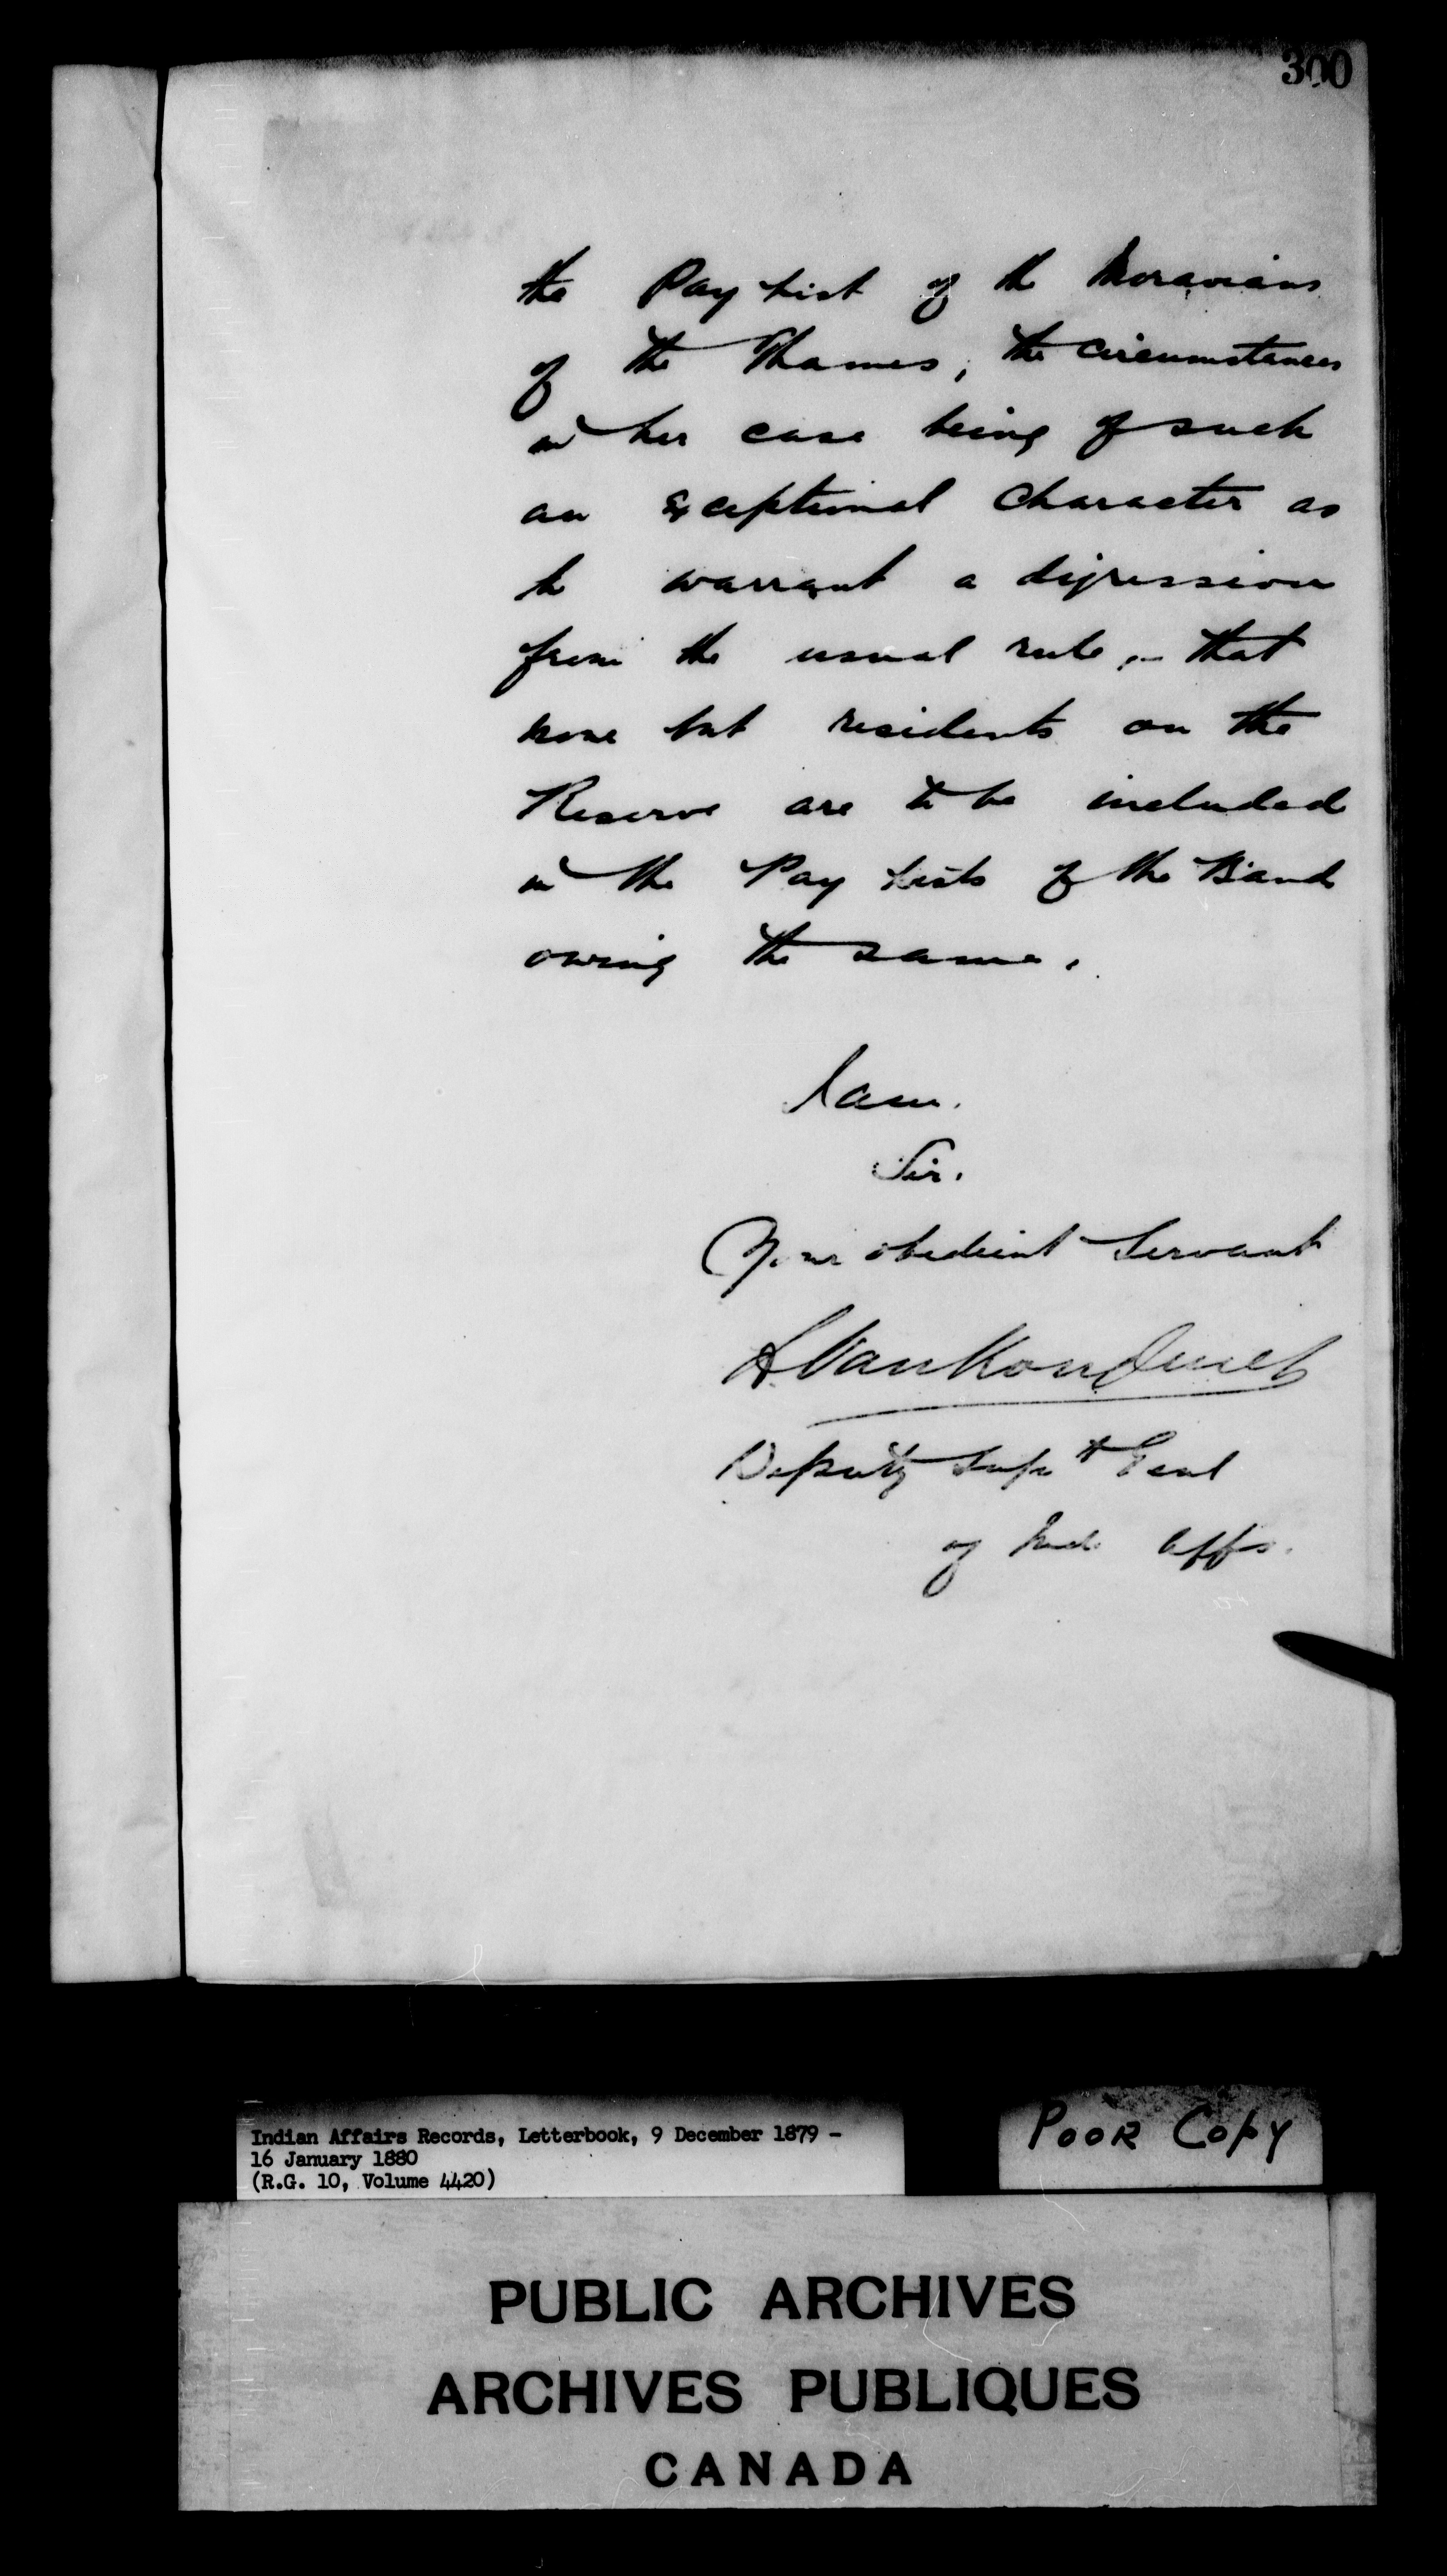 300
the Pay List of the Moravians
of the Thames, the circumstances
in her case being of such
an exceptional character as
to warrant a digression
from the usual rule, - that
none but residents on the
Reserve are to be included
in the Pay Lists of the Band
owing the same.
I am.
Sir.
Your obedient Servant
L VanKoughnet
Deputy Supt Genl
of Ind. Affs.
Indian Affairs Records, Letterbook, 9 December 1879 -
16 January 1880
(R.G. 10, Volume 4420)
POOR COPY
PUBLIC ARCHIVES
ARCHIVES PUBLIQUES
CANADA